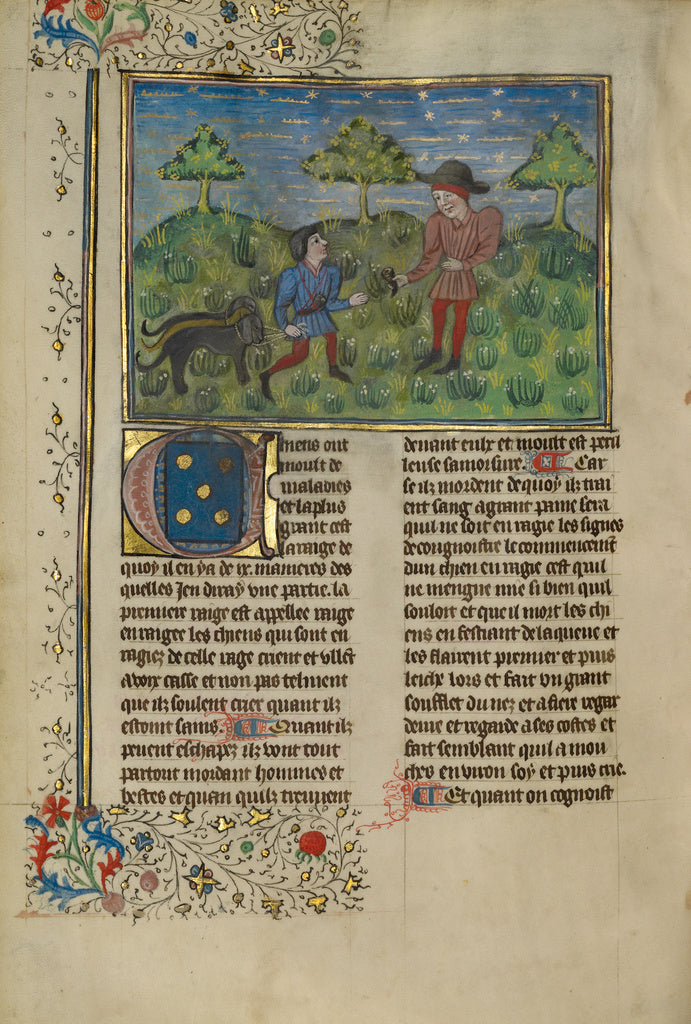 Chiens ont
moult de
maladies
et la plus
grant cest
la raige de
quoy il en ya de ix. manieres des
quelles Jen diray une partie. la
premiere raige est appellee raige
enraigee les chiens qui sont en
ragiez de celle rage crient et ullet
a voix casse et non pas telment
que ilz soulent crier quant ilz
estoint sains. Quant ilz
peuent eschaper ilz vont tout
partout mordant hommes et
bestes et quan quilz treuvent
devant eulx et moult est peril
leuse sa morsure. Car
se ilz mordent de quoy ilz trai
ent sang a grant paine sera
quil ne soit en ragie les signes
de congnoistre le commencement
dun chien en ragie cest quil
ne mengue mie si bien quil
souloit et que il mort les chi
ens en festiant de la queue et
les flairent premier et puis
leiche lors et fait un grant
soufflet du nez et a fiere regar
deure et regarde a ses costes et
fait semblant quil a mou
ches environ soy et puis crie.
Et quant on cognoist